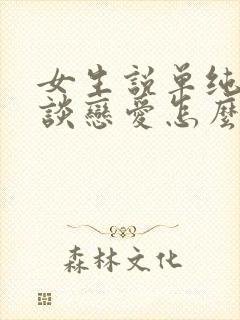 女生說单纯
談戀愛怎麼
森林文化